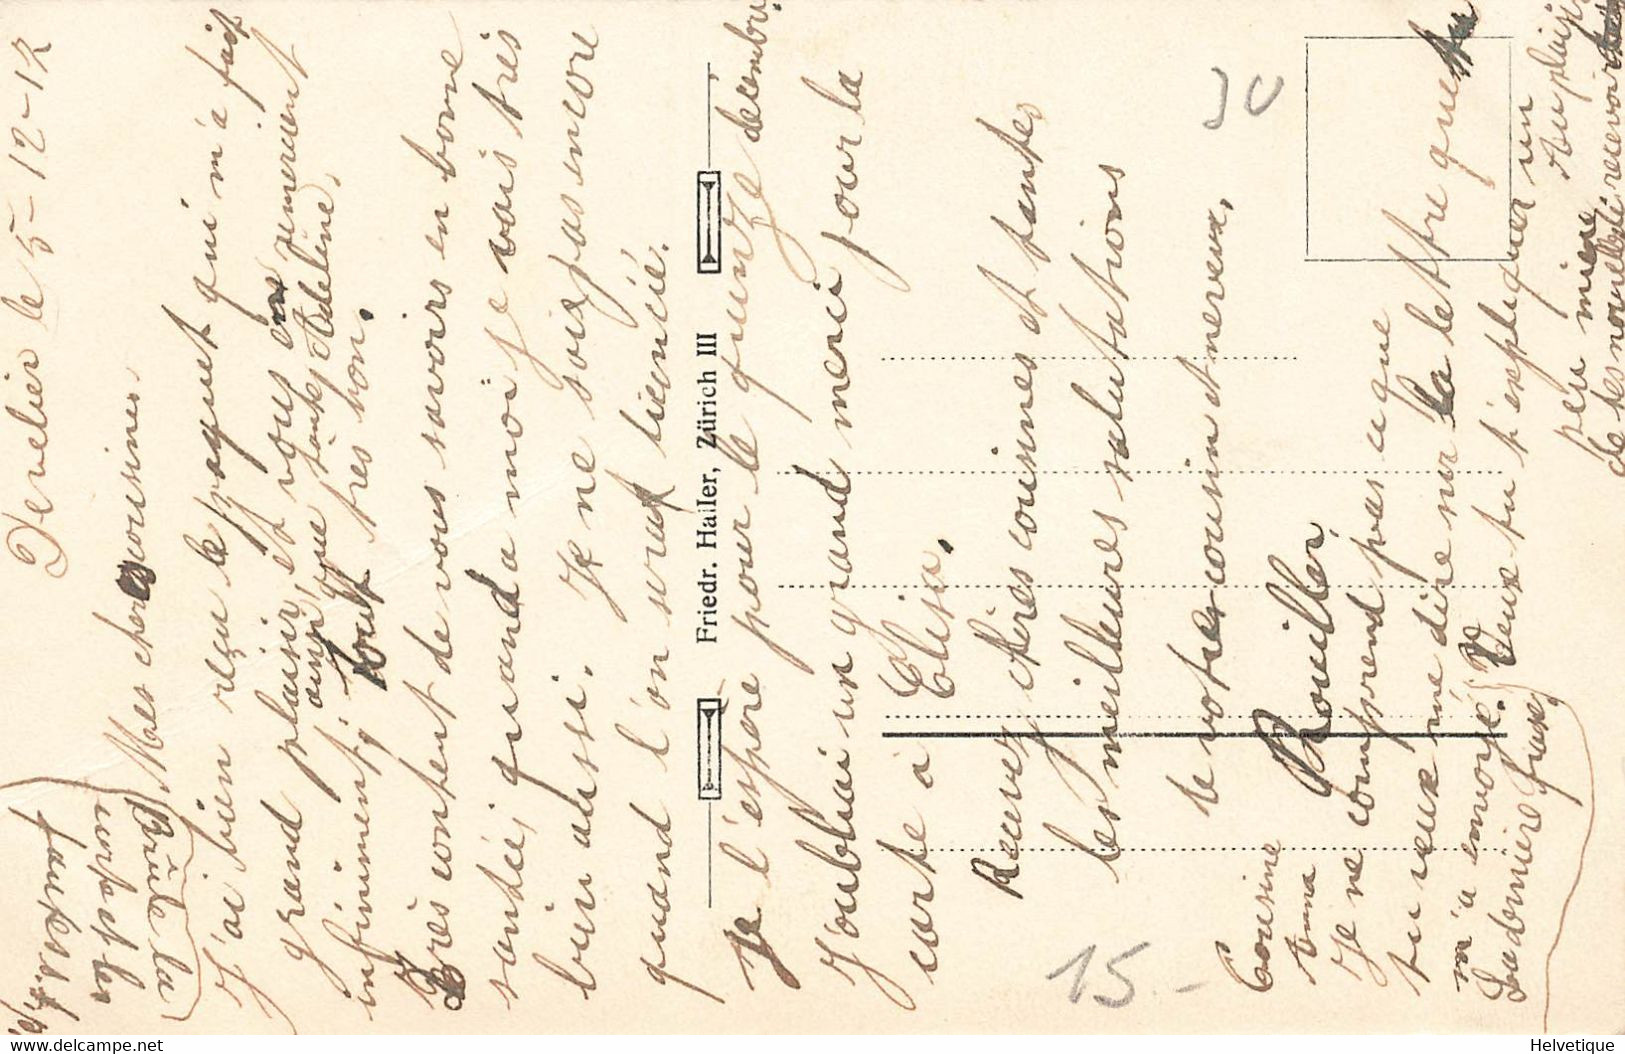 Develier le 5-12-12
Mes chères cousines
J'ai bien reçu le paquet qui m'a fait
grand plaisir, et vous en remercient
infiniment, ainsi que tante Adeline,
j' tout très bon.
Très content de vous savoirs en bonne
santée, quand a moi je vais très
bien aussi. Je ne sois pas encore
quand l'on seraf licencié.
Je l'espère pour le quinze décembre.
J'oubliai un grand merci pour la
carte à Elisa.
Recevez chères cousines et tantes
les meilleures salutations
de votres cousin et neveux,
Rouiller
Cousine
Anna
Je ne comprend pas a que
tu veux me dire sur la lettre que tu
m'a envoyé. Je
La dernière fois,
veux tu t'expliquer un
peu mieux
Au plaisir
de tes nouvelles recevoir
Brûle la
carte et les
Friedr. Haller, Zürich III
30
15.-
delcampe.net
Helvetique